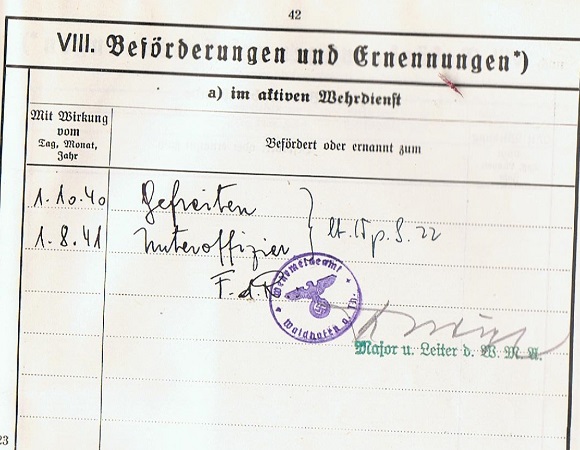 42
VIII. Beförderungen und Ernennungen*)
a) im aktiven Wehrdienst
Mit Wirkung
vom
Tag, Monat,
Jahr
Befördert oder ernannt zum
1.10.40 Gefreiten
1.8.41 Unteroffizier
lt. Wp. S. 22
F.d.R.
Wehrmeldeamt
Waidhofen a. d. Th.
Major u. Leiter d. W. M. A.
23